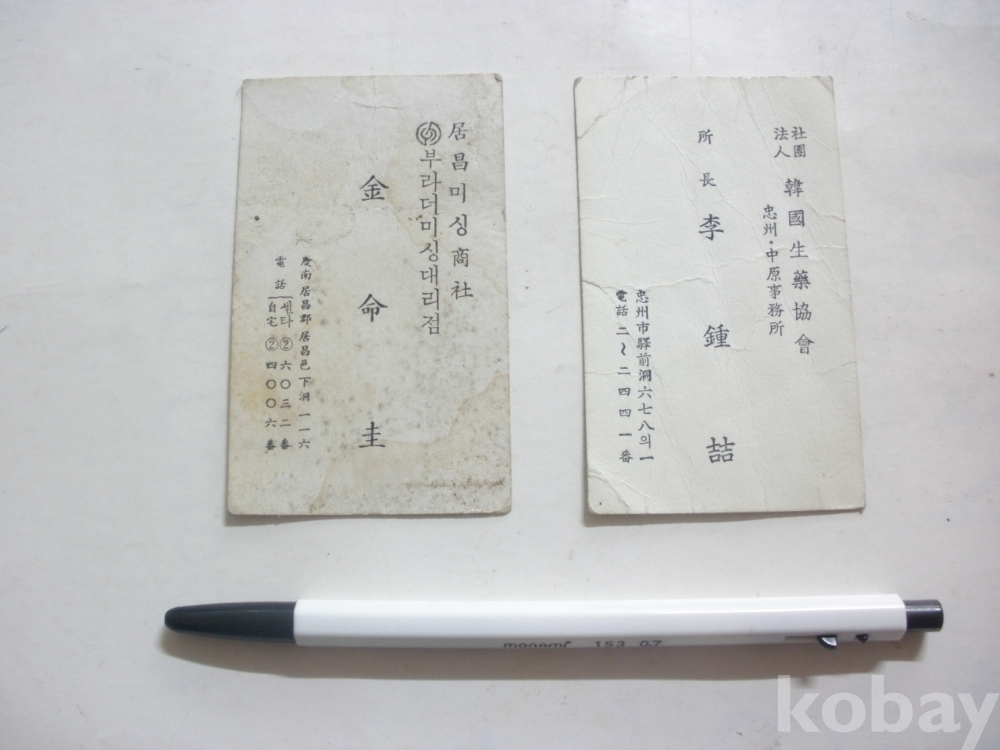 居昌미싱商社
부라더미싱대리점
金命圭
慶南居昌郡居昌邑下洞一一六
電話
쎈타 ② 六〇三二番
自宅 ② 四〇〇六番
社團法人 韓國生藥協會
忠州·中原事務所
所長 李鍾喆
忠州市驛前洞六七八의一
電話 二~二四四一番
monami 153 0.7
kobay